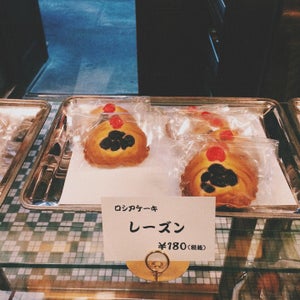 ロシアケーキ
レーズン
¥180(税抜)